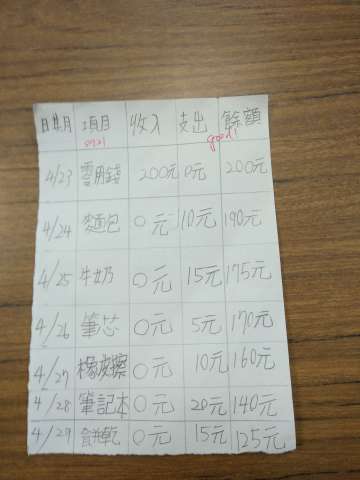 日期 項目 收入 支出 餘額
good!
4/23 零用錢 200元 0元 200元
4/24 麵包 0元 10元 190元
4/25 牛奶 0元 15元 175元
4/26 筆芯 0元 5元 170元
4/27 橡皮擦 0元 10元 160元
4/28 筆記本 0元 20元 140元
4/29 餅乾 0元 15元 125元